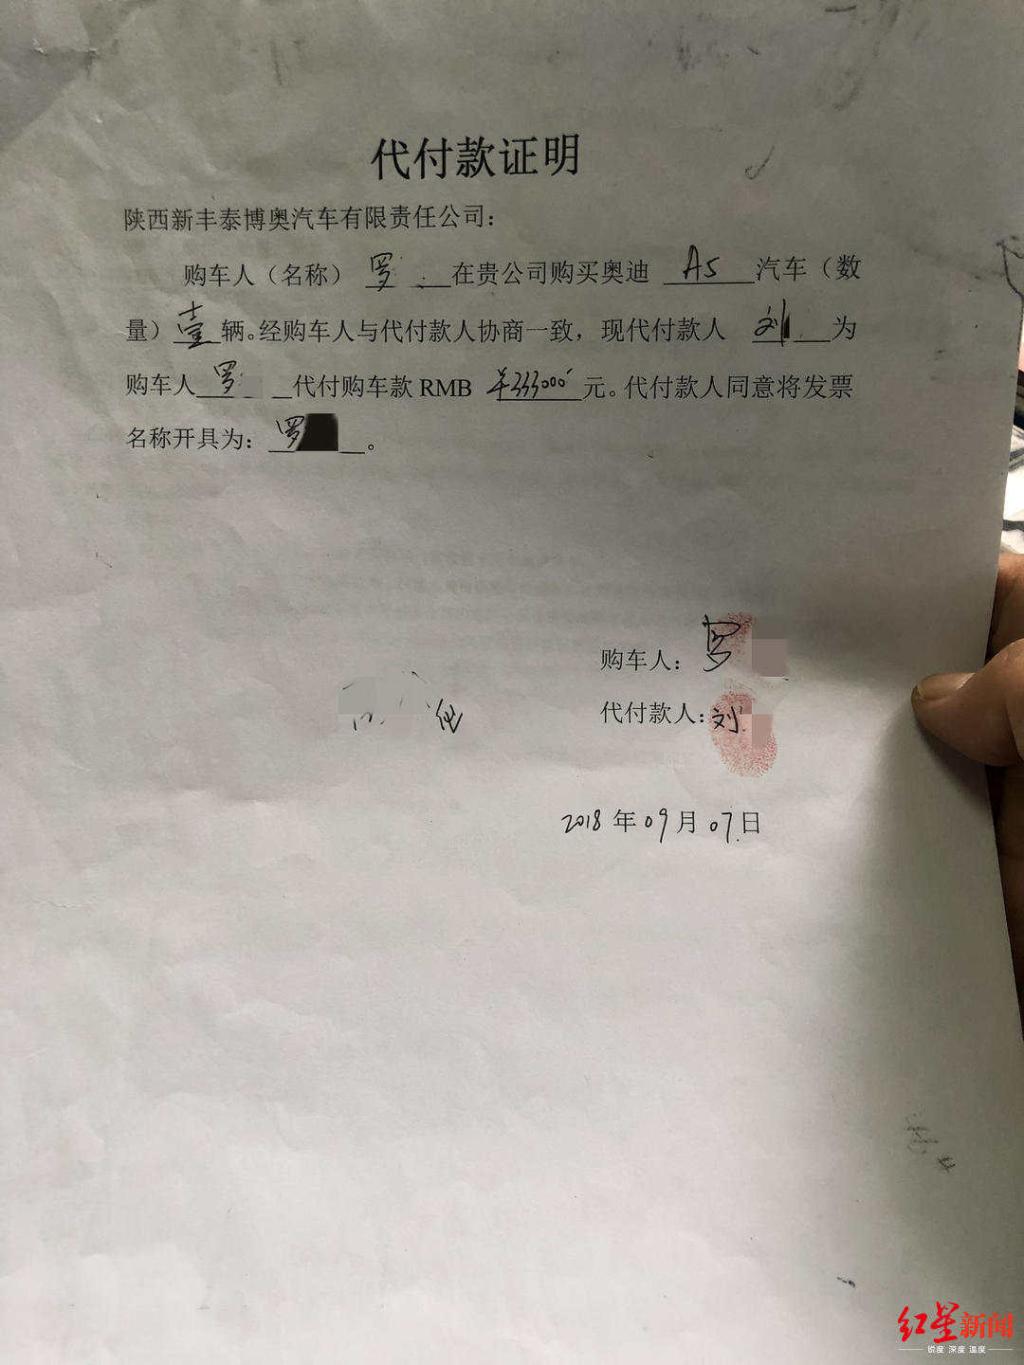 代付款证明
陕西新丰泰博奥汽车有限责任公司：
购车人（名称）罗 在贵公司购买奥迪 A5 汽车（数
量）壹辆。经购车人与代付款人协商一致，现代付款人 刘 为
购车人 罗 代付购车款 RMB ¥333000 元。代付款人同意将发票
名称开具为：罗 。
购车人：罗
代付款人：刘
2018 年 09 月 07 日
红星新闻
锐度 深度 温度